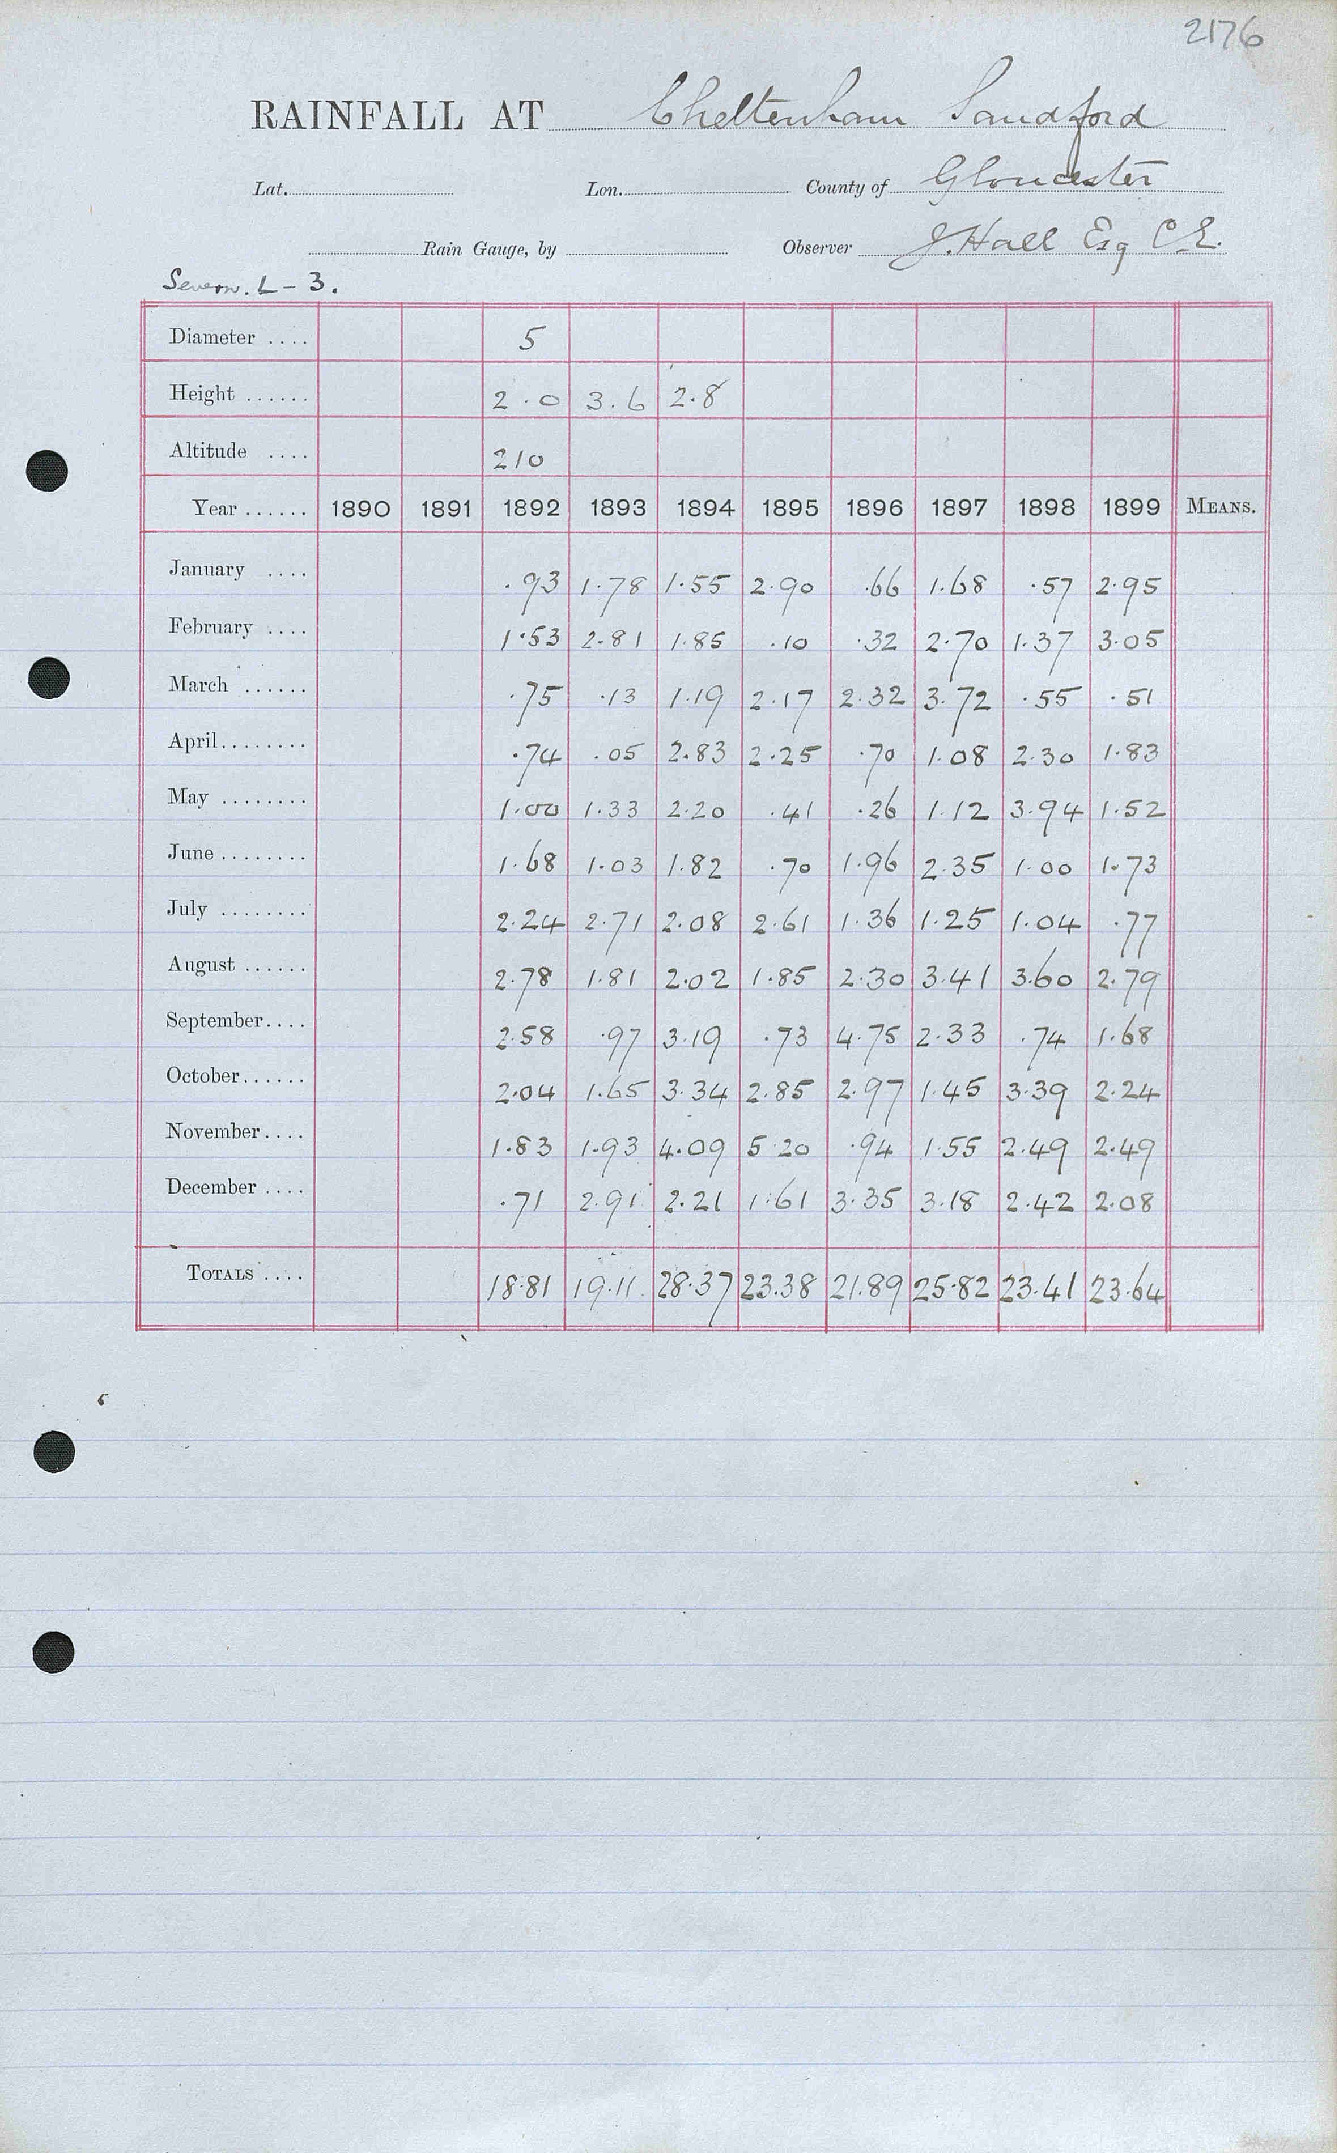 2176
RAINFALL AT Cheltenham Sandford
Lat. Lon. County of Gloucester
Rain Gauge, by Observer J. Hall Esq C.E.
Severn. L - 3.
Diameter .... 5
Height ...... 2.0 3.6 2.8
Altitude .... 210
Year ...... 1890 1891 1892 1893 1894 1895 1896 1897 1898 1899 MEANS.
January .... .93 1.78 1.55 2.90 .66 1.68 .57 2.95
February .... 1.53 2.81 1.85 .10 .32 2.70 1.37 3.05
March ...... .75 .13 1.19 2.17 2.32 3.72 .55 .51
April........ .74 .05 2.83 2.25 .70 1.08 2.30 1.83
May ........ 1.00 1.33 2.20 .41 .26 1.12 3.94 1.52
June ........ 1.68 1.03 1.82 .70 1.96 2.35 1.00 1.73
July ........ 2.24 2.71 2.08 2.61 1.36 1.25 1.04 .77
August ...... 2.78 1.81 2.02 1.85 2.30 3.41 3.60 2.79
September.... 2.58 .97 3.19 .73 4.75 2.33 .74 1.68
October...... 2.04 1.65 3.34 2.85 2.97 1.45 3.39 2.24
November.... 1.83 1.93 4.09 5.20 .94 1.55 2.49 2.49
December .... .71 2.91 2.21 1.61 3.35 3.18 2.42 2.08
TOTALS .... 18.81 19.11 28.37 23.38 21.89 25.82 23.41 23.64